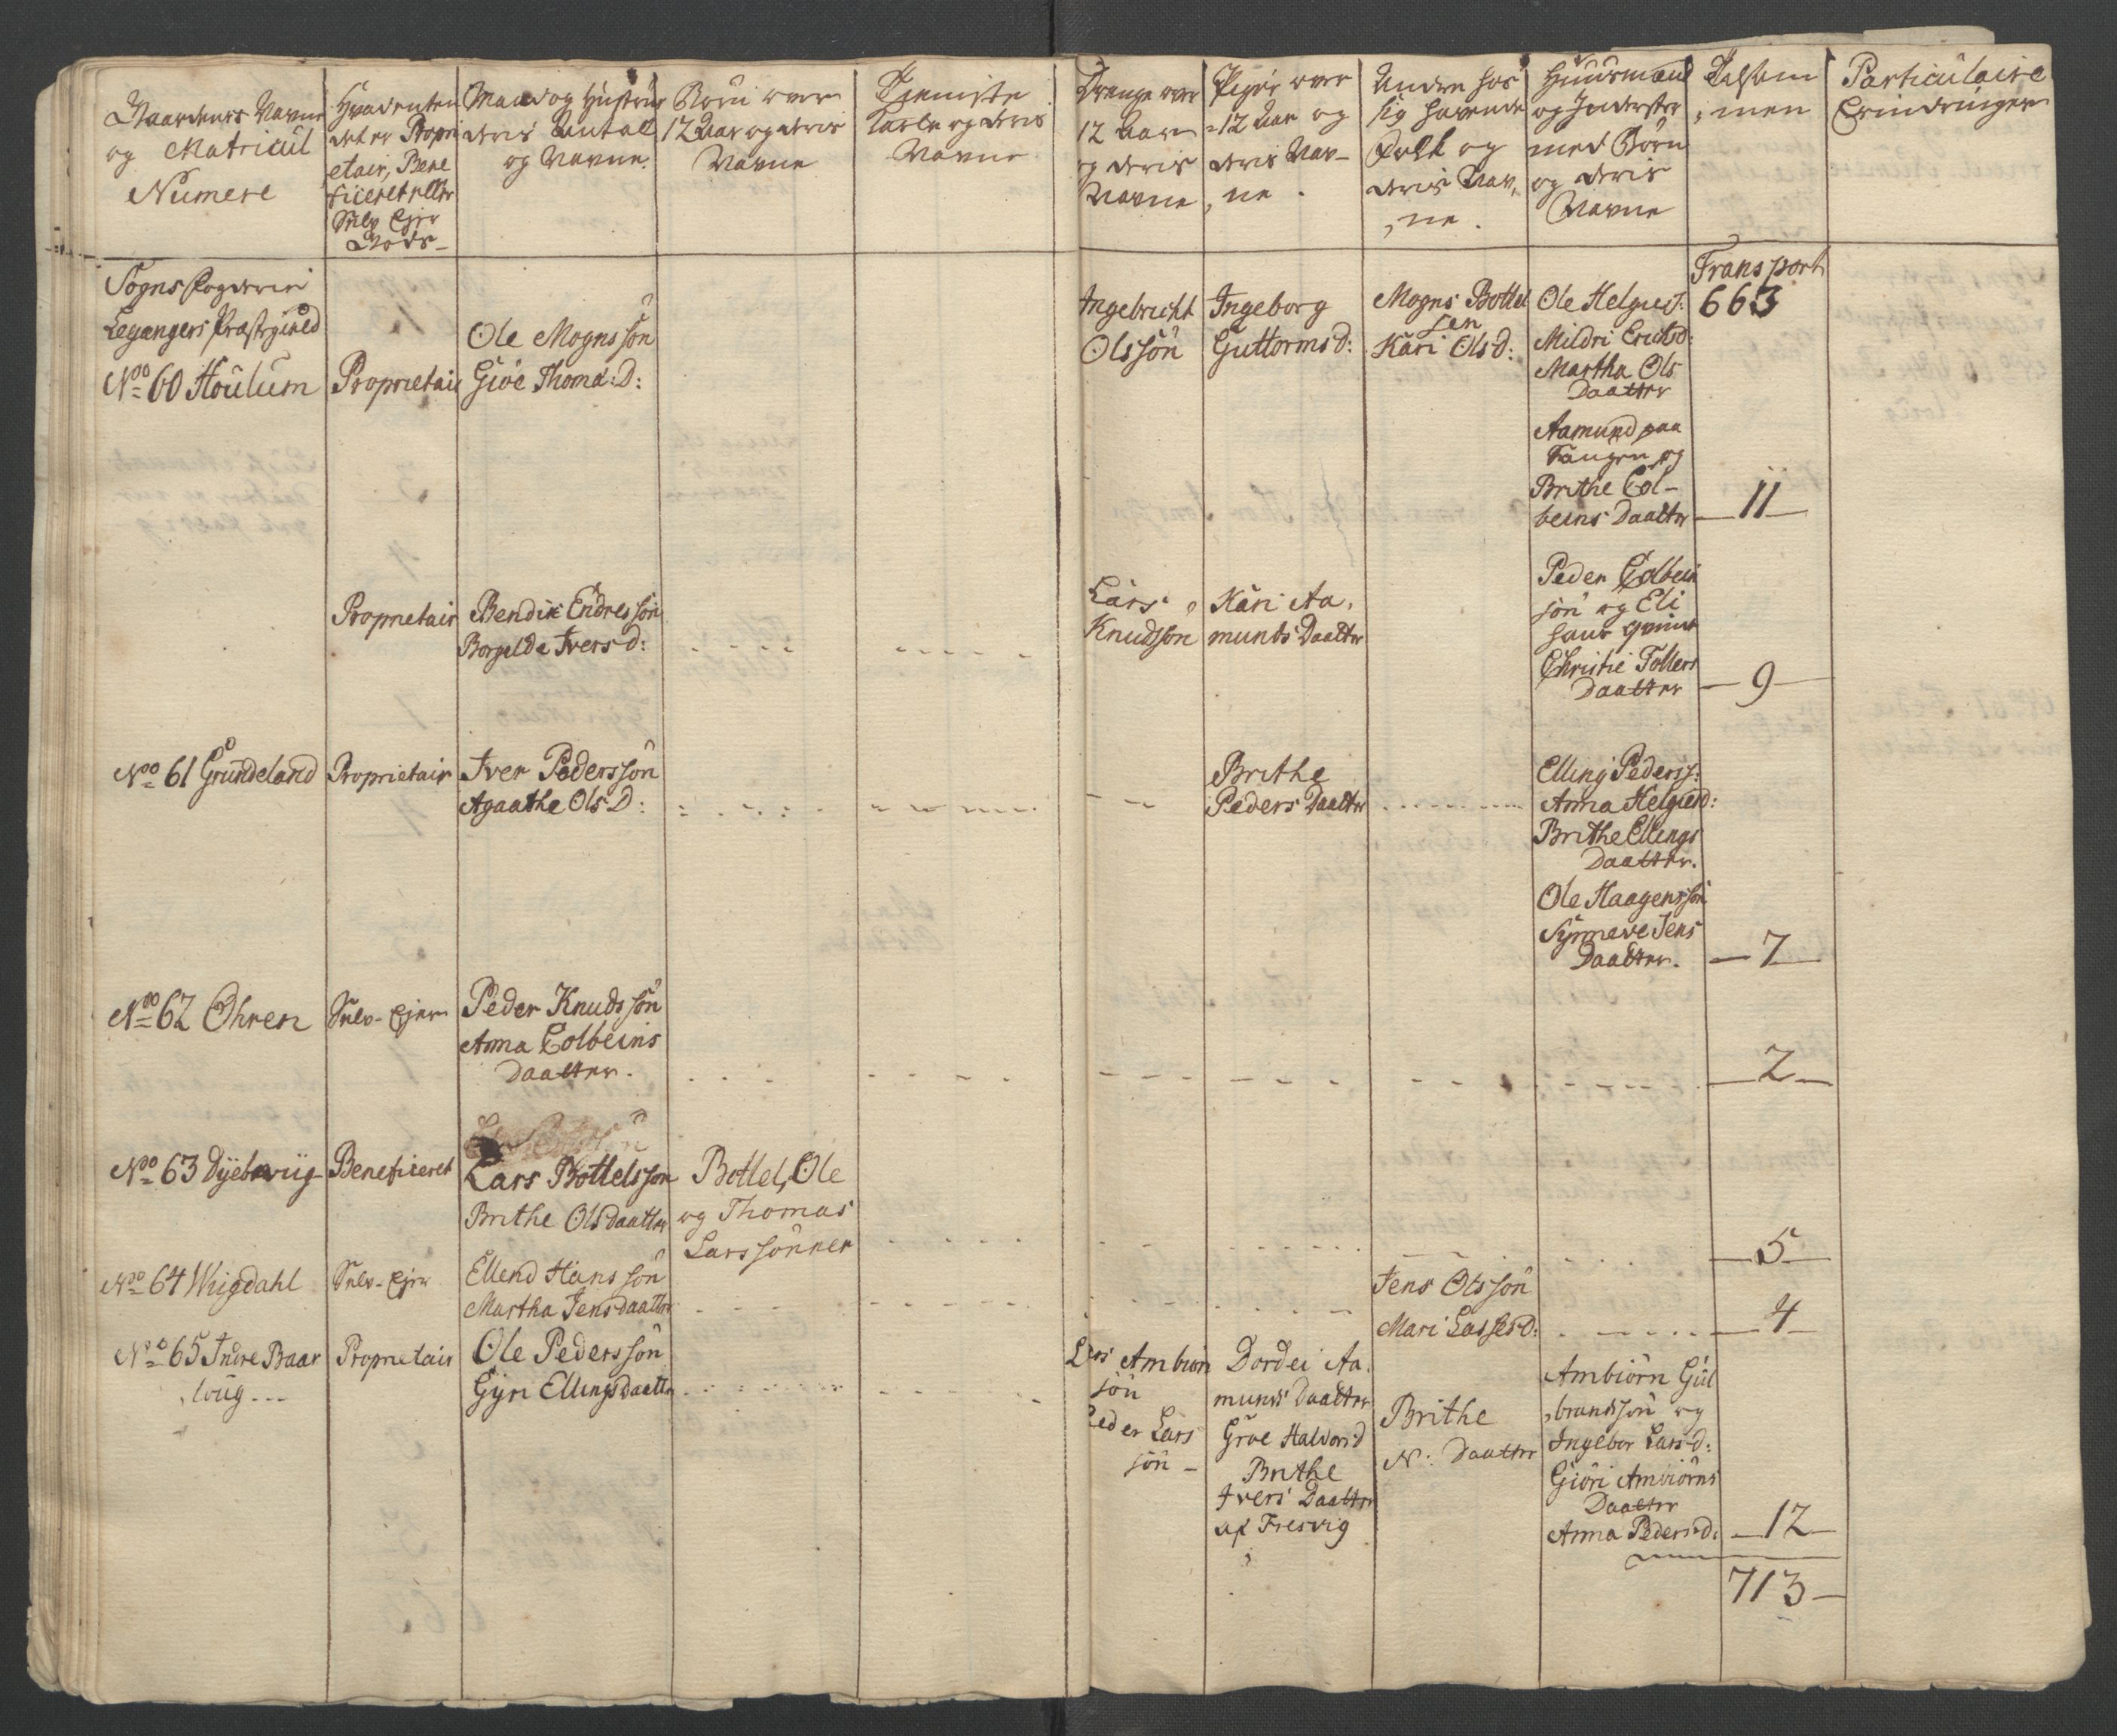 Gaardens Navne
og Matricul
Numere
Hvad enten
det er Propri
etair, Bene
ficeret eller
Selv Ejer
Gods
Mand og Hustrue
deris Antall
og Navne.
Børn over
12 Aar og deris
Navne
Tienniste
Karle og deris
Navne
Drenge over
12 Aar
og deris
Navne
Piger over
12 Aar og
deris Nav-
ne.
Andre hos
sig havende
Folk og
deris Nav,
,ne.
Huusmænd
og Inderster
med Børn
og deris
Navne
Talsum
,men
Particulaire
Erindringer
Sogns Fogderie
Legangers Præstegield
No 60 Houlum
Proprietair
Ole Mognssøn
Giøe Thoma:D:
Ingebricht
Olssøn
Ingeborg
Guttormsd:
Mogns Bottel
sen
Kari Olsd:
Ole Helgies:
Mildri Erichsd:
Martha Ols
Daatter
Aamund paa
Tangen og
Brithe Col-
beins Daatter
Transport
663
11
Proprietair
Bendix Endressøn
Borgelde Iversd:
Lars
Knudssøn
Kari Aa,
munds Daatter
Peder Colbein
søn og Eli
hans qvinde
Christie Tollers
Daatter
9
No 61 Grundeland
Proprietair
Iver Pederssøn
Agaathe Ols D:
Brithe
Peders Daatter
Elling Peders s:
Anna Helgiesd:
Brithe Ellings
Daatter.
Ole Haagenssøn
Synneve Jens
Daatter.
7
No 62 Ohren
Selv-Ejer
Peder Knudssøn
Anna Colbeins
Daatter.
2
No 63 Dyebvuig
Beneficeret
Lars Bottelssøn
Brithe Olsdaatter
Bottel, Ole
og Thomas
Larssønner
5
No 64 Wigdahl
Selv-Ejer
Ellend Hanssøn
Martha Jensdaatter
Jens Olssøn
Mari Lassesd:
4
No 65 Indre Baar
,loug ---
Proprietair
Ole Pederssøn
Gyri Ellingsdaatter
Lars Ambiørn
søn
Peder Lars
søn -
Dordei Aa,
munds Daatter
Groe Halvorsd
Brithe
Ivers Daatter
af Fresvig
Brithe
N: Daatter
Ambiørn Gul
,brandssøn og
Ingebor Larsd:
Giøri Ambiørns
Daatter
Anna Pedersd:
12
713